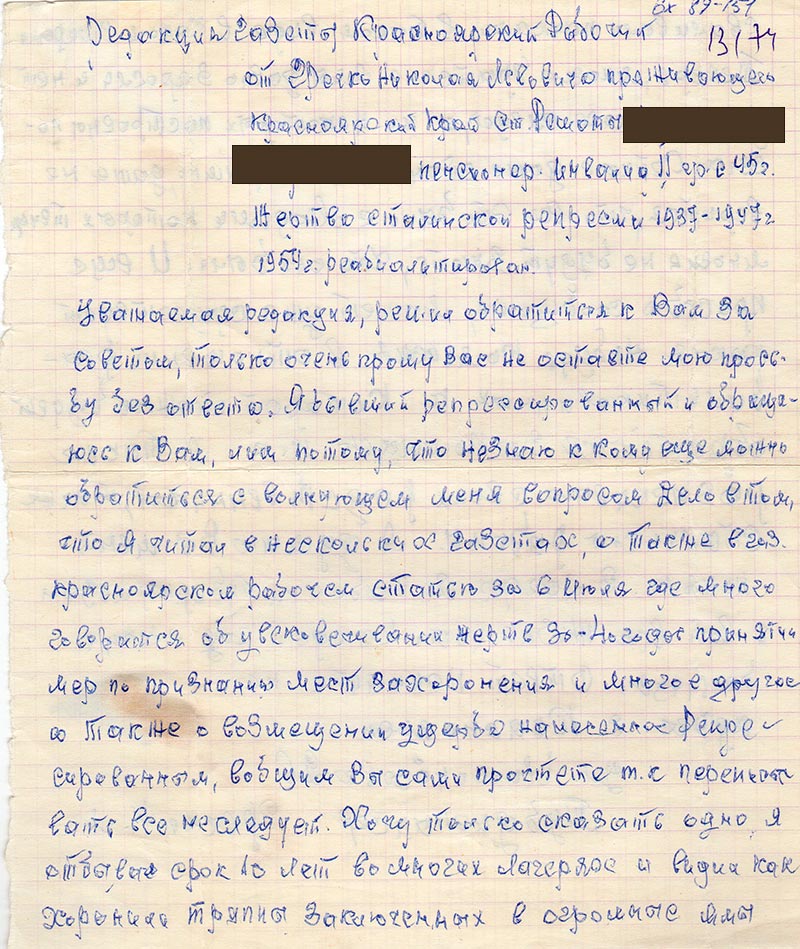 вх 89-151
Редакции Газеты Красноярский Рабочий
13/74
от Гречко Николая Львовича проживающего
Красноярский край ст. Решоты
пенсионер. инвалид II гр. с 45 г.
Жертва сталинской репрессии 1937-1947 г
1957 г реабилитирован
Уважаемая редакция, решил обратиться к Вам за
советом, только очень прошу Вас не оставте мою прось-
бу без ответа. Я бывший репрессированный и обраща-
юсь к Вам, лиш потому, что незнаю к кому еще можно
обратиться с волнующем меня вопросом Дело в том,
что я читал в нескольких газетах, а также в газ.
красноярском рабочем статью за 6 Июля где много
говорится об увековечивании жертв 30-40 годы принятии
мер по признанию мест захоронения и многое другое
а также о возмещении ущерба нанесенное Репре-
сированным, вобщим Вы сами прочтете т.к переписы
вать все неследует. Хочу только сказать одно, я
отбывал срок 10 лет во многих лагерях и видил как
Хоронили трупы Заключенных в огромные ямы